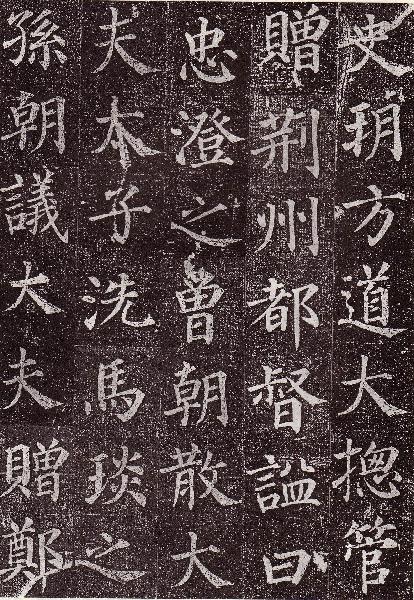 史朔方道大摠管
贈荊州都督謚曰
忠澄之曾朝散大
夫太子洗馬琰之
孫朝議大夫贈鄭